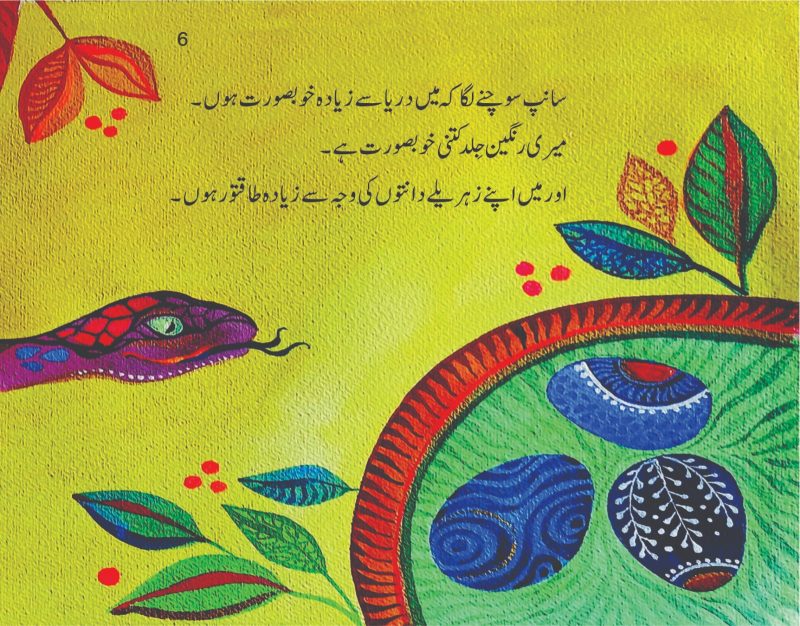 6
سانپ سوچنے لگا کہ میں دریا سے زیادہ خوبصورت ہوں۔
میری رنگین جِلد کتنی خوبصورت ہے۔
اور میں اپنے زہریلے دانتوں کی وجہ سے زیادہ طاقتور ہوں۔